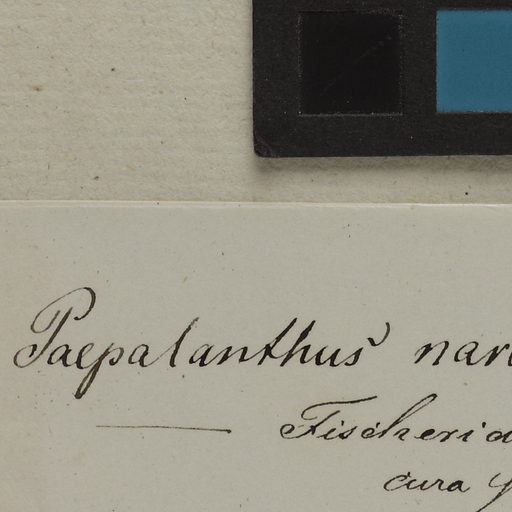 Paepalanthus nar
Fischeri a
cura